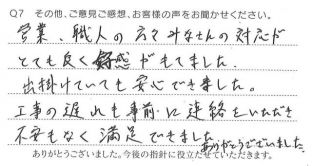 Q7 その他、ご意見ご感想、お客様の声をお聞かせください。
営業、職人の方々みなさんの対応が
とても良く好感がもてました。
出掛けていても安心できました。
工事の遅れも事前に連絡をいただき
不安もなく満足できました。
ありがとうございました。
ありがとうございました。今後の指針に役立たせていただきます。